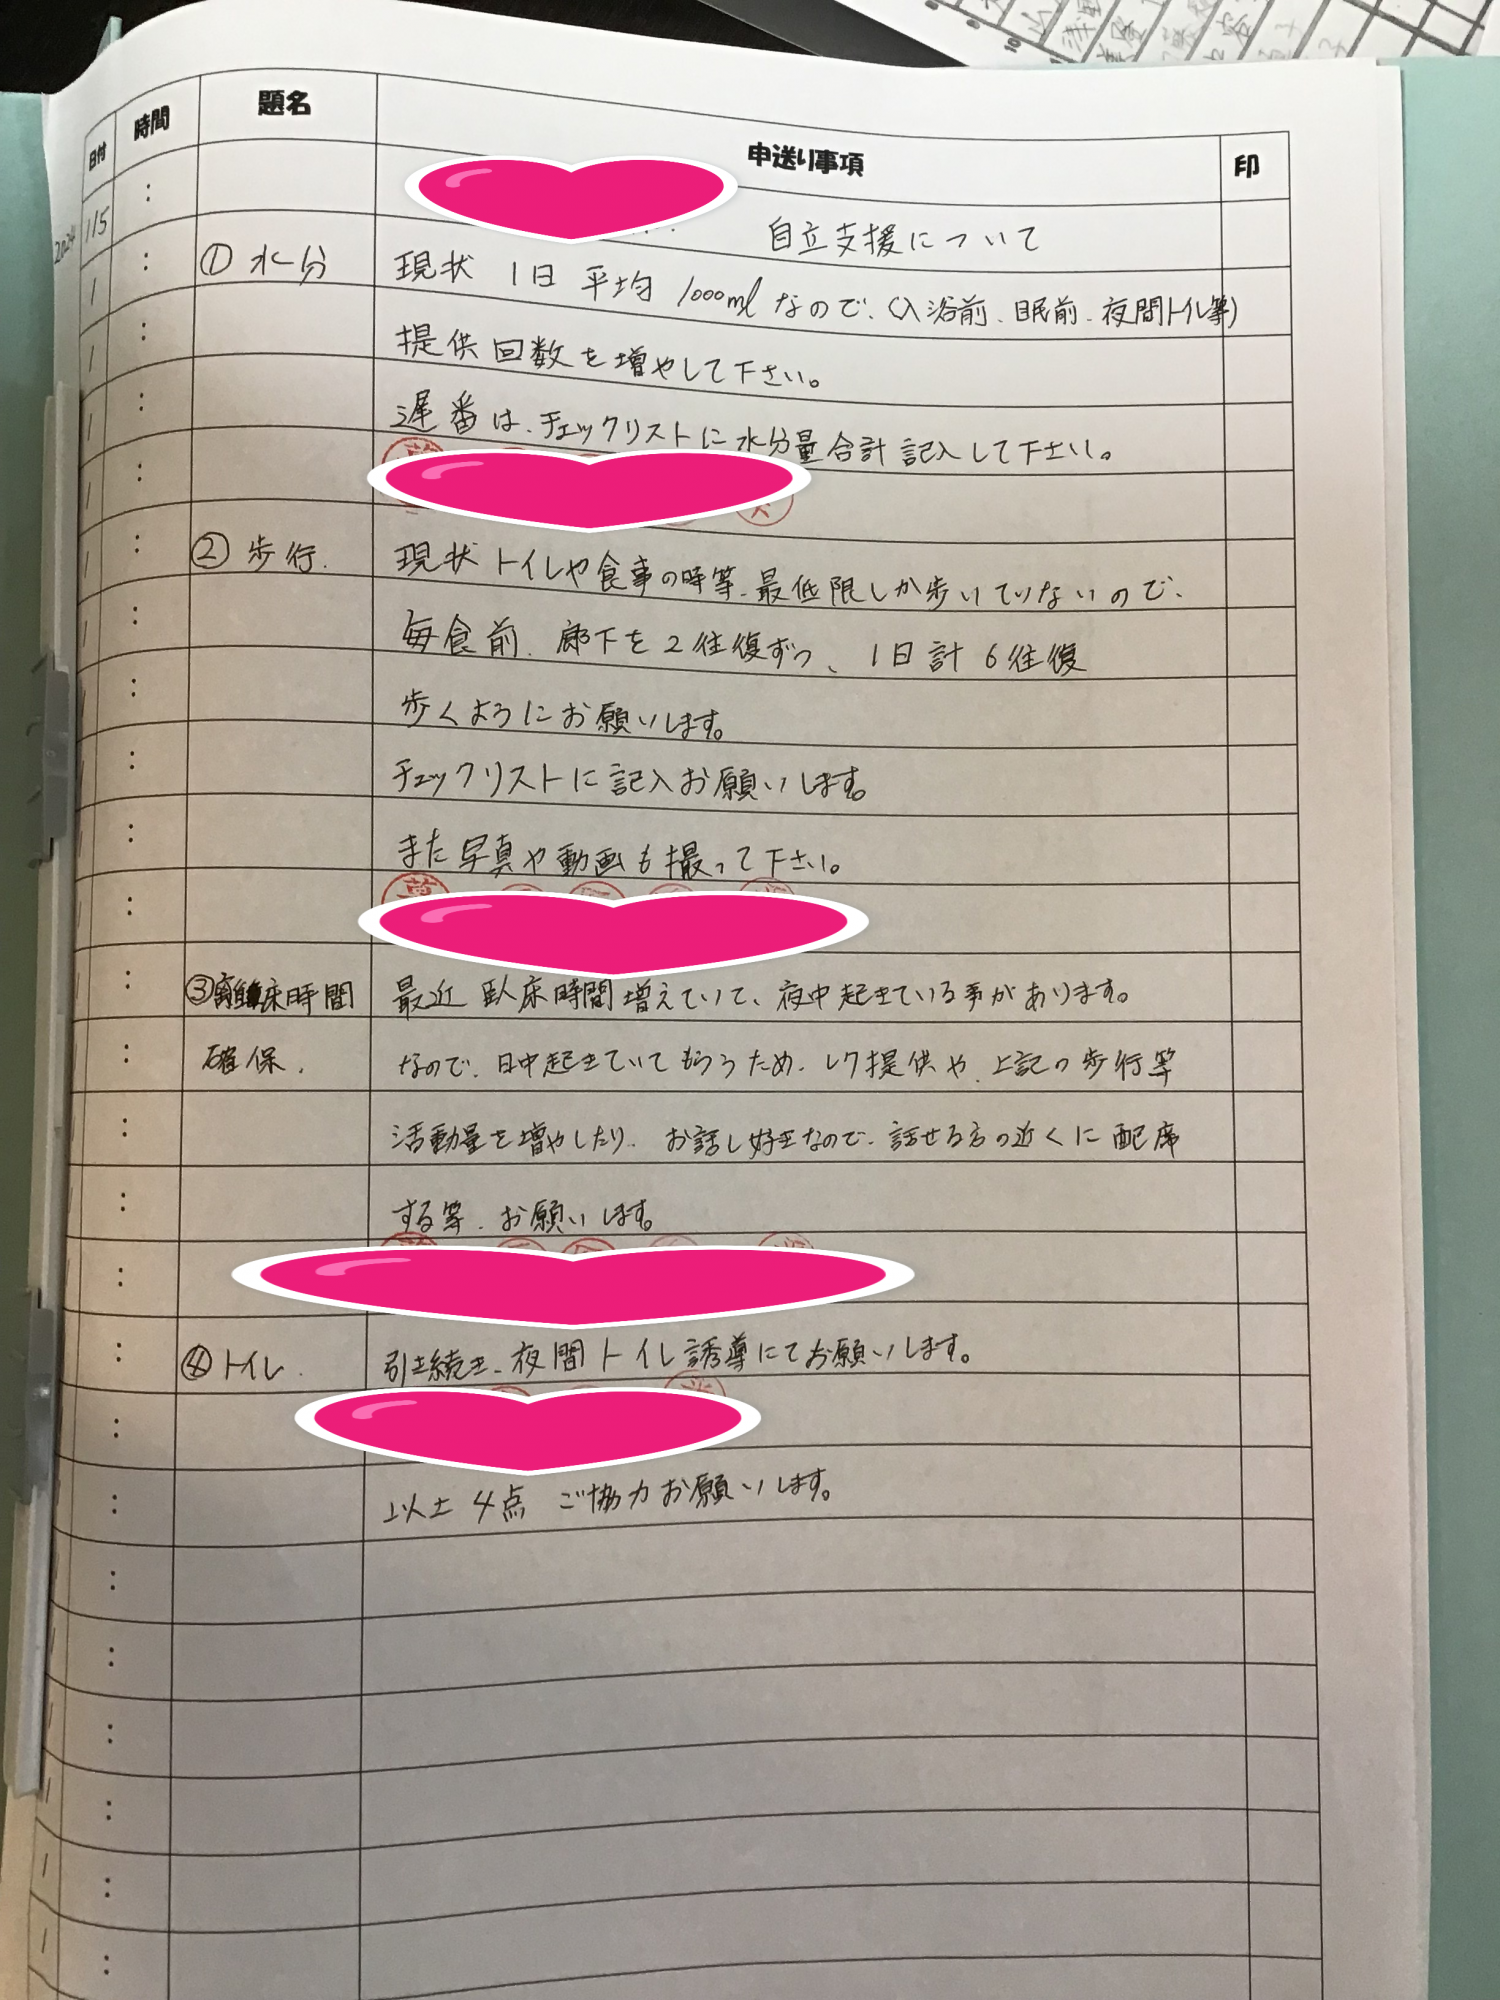 日付 時間 題名 申送り事項 印
2024 1/5 自立支援について
① 水分 現状 1日 平均 1000ml なので、(入浴前、眠前、夜間トイレ等)
提供回数を増やして下さい。
遅番は、チェックリストに水分量合計記入して下さい。
② 歩行. 現状 トイレや食事の時等、最低限しか歩いていないので、
毎食前、廊下を2往復ずつ、1日計6往復
歩くようにお願いします。
チェックリストに記入お願いします。
また写真や動画も撮って下さい。
③離床時間 最近 臥床時間増えていて、夜中起きている事があります。
確保. なので、日中起きていてもらうため、レク提供や、上記の歩行等
活動量を増やしたり、お話し好きなので、話せる方の近くに配席
する等、お願いします。
④トイレ. 引き続き、夜間トイレ誘導にてお願いします。
以上4点 ご協力お願いします。